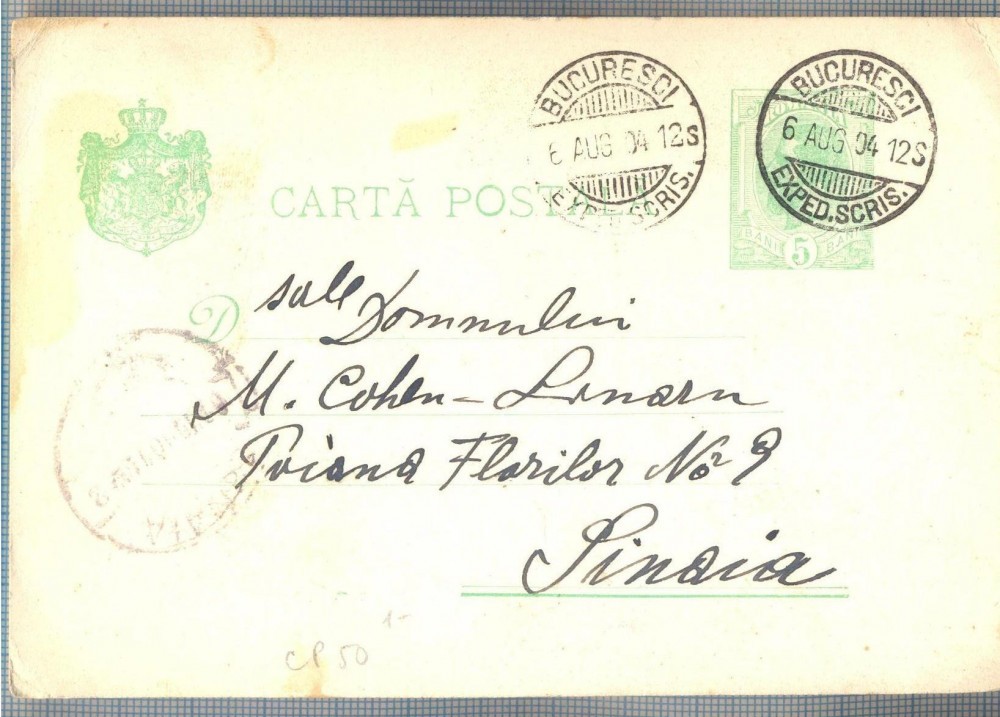 BUCURESCI
6 AUG 04 12S
EXP. SCRIS.
BUCURESCI
6 AUG 04 12S
EXPED. SCRIS.
CARTĂ POST
BANI 5 BANI
D
sale Domnului
M. Cohen-Linaru
Poiana Florilor No 9
Sinaia
SINAIA
1-
CP 50